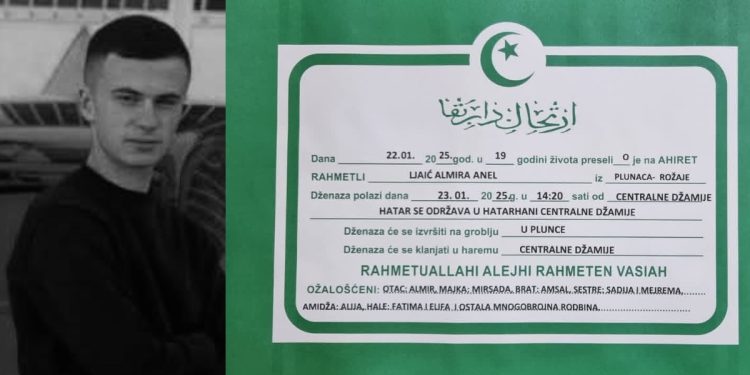 ارتحال دار بقا
Dana 22.01. 2025.god. u 19 godini života preseli o je na AHIRET
RAHMETLI LJAIĆ ALMIRA ANEL iz PLUNACA- ROŽAJE
Dženaza polazi dana 23.01. 2025.g. u 14:20 sati od CENTRALNE DŽAMIJE
HATAR SE ODRŽAVA U HATARHANI CENTRALNE DŽAMIJE
Dženaza će se izvršiti na groblju U PLUNCE
Dženaza će se klanjati u haremu CENTRALNE DŽAMIJE
RAHMETUALLAHI ALEJHI RAHMETEN VASIAH
OŽALOŠĆENI: OTAC: ALMIR, MAJKA: MIRSADA, BRAT: AMSAL, SESTRE: SADIJA I MEJREMA,
AMIDŽA: ALIJA, HALE: FATIMA I ELIFA I OSTALA MNOGOBROJNA RODBINA.